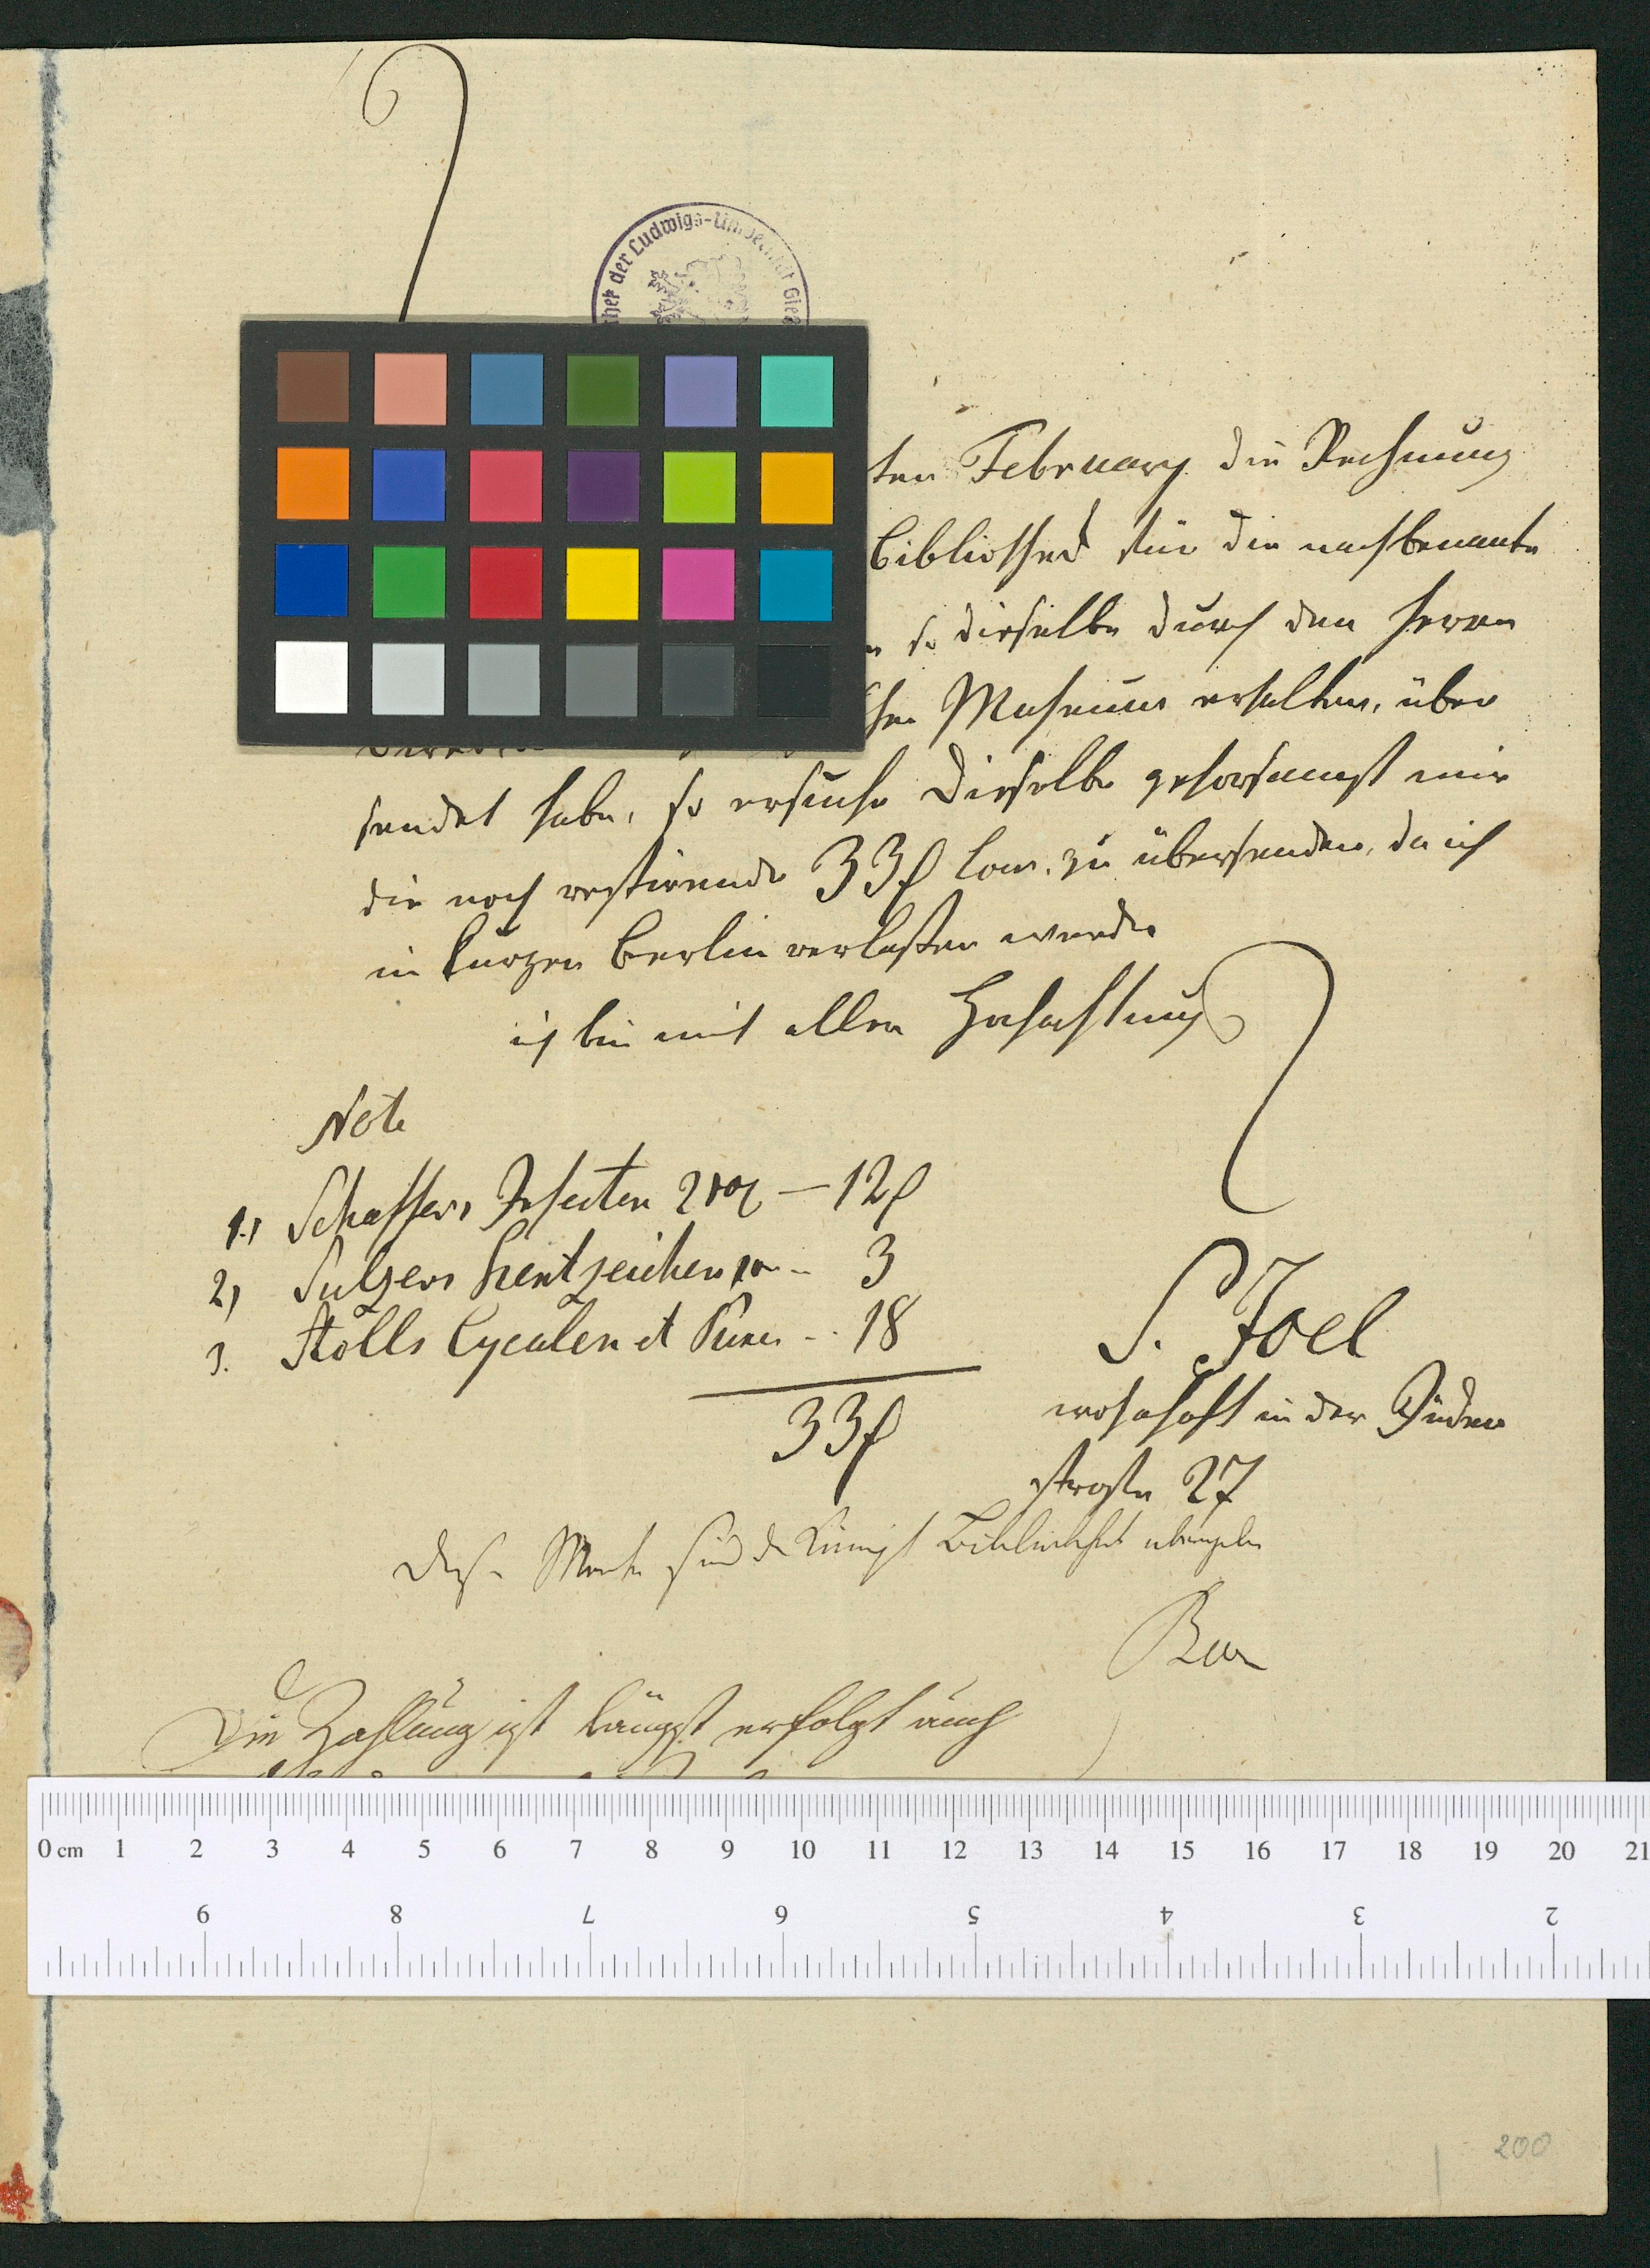 der Ludwigs-Universität Gieß
ten February die Rechnung
Bibliotheck für die nachbenante
so dieselbe durch den Herren
schen Museum erhalten, über
sendet habe, so ersuche Dieselbe gehorsamst mir
die noch restirende 33 Cour. zu übersenden, da ich
in kurzen Berlin verlaßen werde
ich bin mit aller Hochachtung
Note
1., Schaffers Insecten 2 — 12
2, Sulzers Kentzeichen - 3
3. Stolls Cycalen et - 18
33
S. Joel
wohnhaft in der Jüden
straße 27
Diese Werke sind d. Königl Bibliothek übergeben
Die Zahlung ist längst erfolgt auch
0 cm 1 2 3 4 5 6 7 8 9 10 11 12 13 14 15 16 17 18 19 20 21
9 8 7 6 5 4 3 2
200